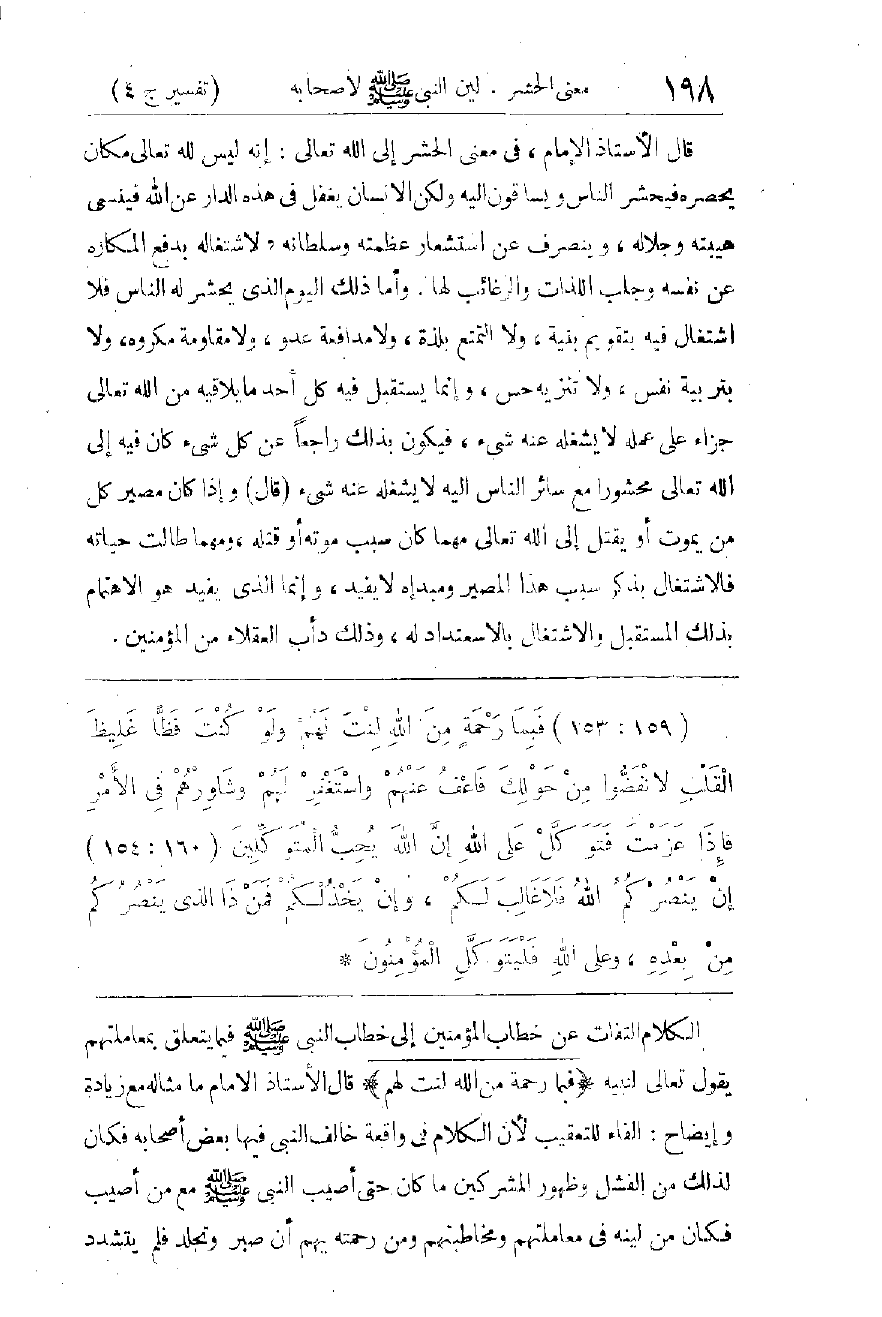 ١٩٨ معنى الحشر . لين النبى ﷺ لأصحابه (تفسير ج ٤)
قال الأستاذ الإمام ، فى معنى الحشر إلى الله تعالى : إنه ليس لله تعالى مكان
يحصره فيحشر الناس ويساقون اليه ولكن الانسان يغفل فى هذه الدار عن الله فينسى
هيبته وجلاله ، وينصرف عن استشعار عظمته وسلطانه ، لاشتغاله بدفع المكاره
عن نفسه وجلب اللذات والرغائب لها . وأما ذلك اليوم الذى يحشر له الناس فلا
اشتغال فيه بتقويم بنية ، ولا التمتع بلذة ، ولا مدافعة عدو ، ولا مقاومة مكروه ، ولا
بتربية نفس ، ولا تنزيه حس ، وإنما يستقبل فيه كل أحد ما يلاقيه من الله تعالى
جزاء على عمله لا يشغله عنه شىء ، فيكون بذلك راجعاً عن كل شىء كان فيه إلى
الله تعالى محشورا مع سائر الناس اليه لا يشغله عنه شىء (قال) وإذا كان مصير كل
من يموت أو يقتل إلى الله تعالى مهما كان سبب موته أو قتله ، ومهما طالت حياته
فالاشتغال بذكر سبب هذا المصير ومبدإه لا يفيد ، وإنما الذى يفيد هو الاهتمام
بذلك المستقبل والاشتغال بالاستعداد له ، وذلك دأب العقلاء من المؤمنين .
(١٥٩ : ١٥٣) فَبِمَا رَحْمَةٍ مِنَ اللهِ لِنْتَ لَهُمْ وَلَوْ كُنْتَ فَظًّا غَلِيظَ
الْقَلْبِ لانْفَضُّوا مِنْ حَوْلِكَ فَاعْفُ عَنْهُمْ واسْتَغْفِرْ لَهُمْ وشَاوِرْهُمْ فِى الأَمْرِ
فإِذَا عَزَمْتَ فَتَوَكَّلْ عَلَى اللهِ إِنَّ اللهَ يُحِبُّ الْمُتَوَكِّلِينَ (١٦٠ : ١٥٤)
إِنْ يَنْصُرْكُمُ اللهُ فَلَا غَالِبَ لَكُمْ ، وَإِنْ يَخْذُلْكُمْ فَمَنْ ذَا الذى يَنْصُرُكُمْ
مِنْ بَعْدِهِ ، وعلى اللهِ فَلْيَتَوَكَّلِ الْمُؤْمِنُونَ *
الكلام التفات عن خطاب المؤمنين إلى خطاب النبى ﷺ فيما يتعلق بمعاملتهم
يقول تعالى لنبيه ﴿فبما رحمة من الله لنت لهم﴾ قال الأستاذ الامام ما مثاله مع زيادة
وإيضاح : الفاء للتعقيب لأن الكلام فى واقعة خالف النبى فيها بعض أصحابه فكان
لذلك من الفشل وظهور المشركين ما كان حتى أصيب النبى ﷺ مع من أصيب
فكان من لينه فى معاملتهم ومخاطبتهم ومن رحمته بهم أن صبر وتجلد فلم يتشدد